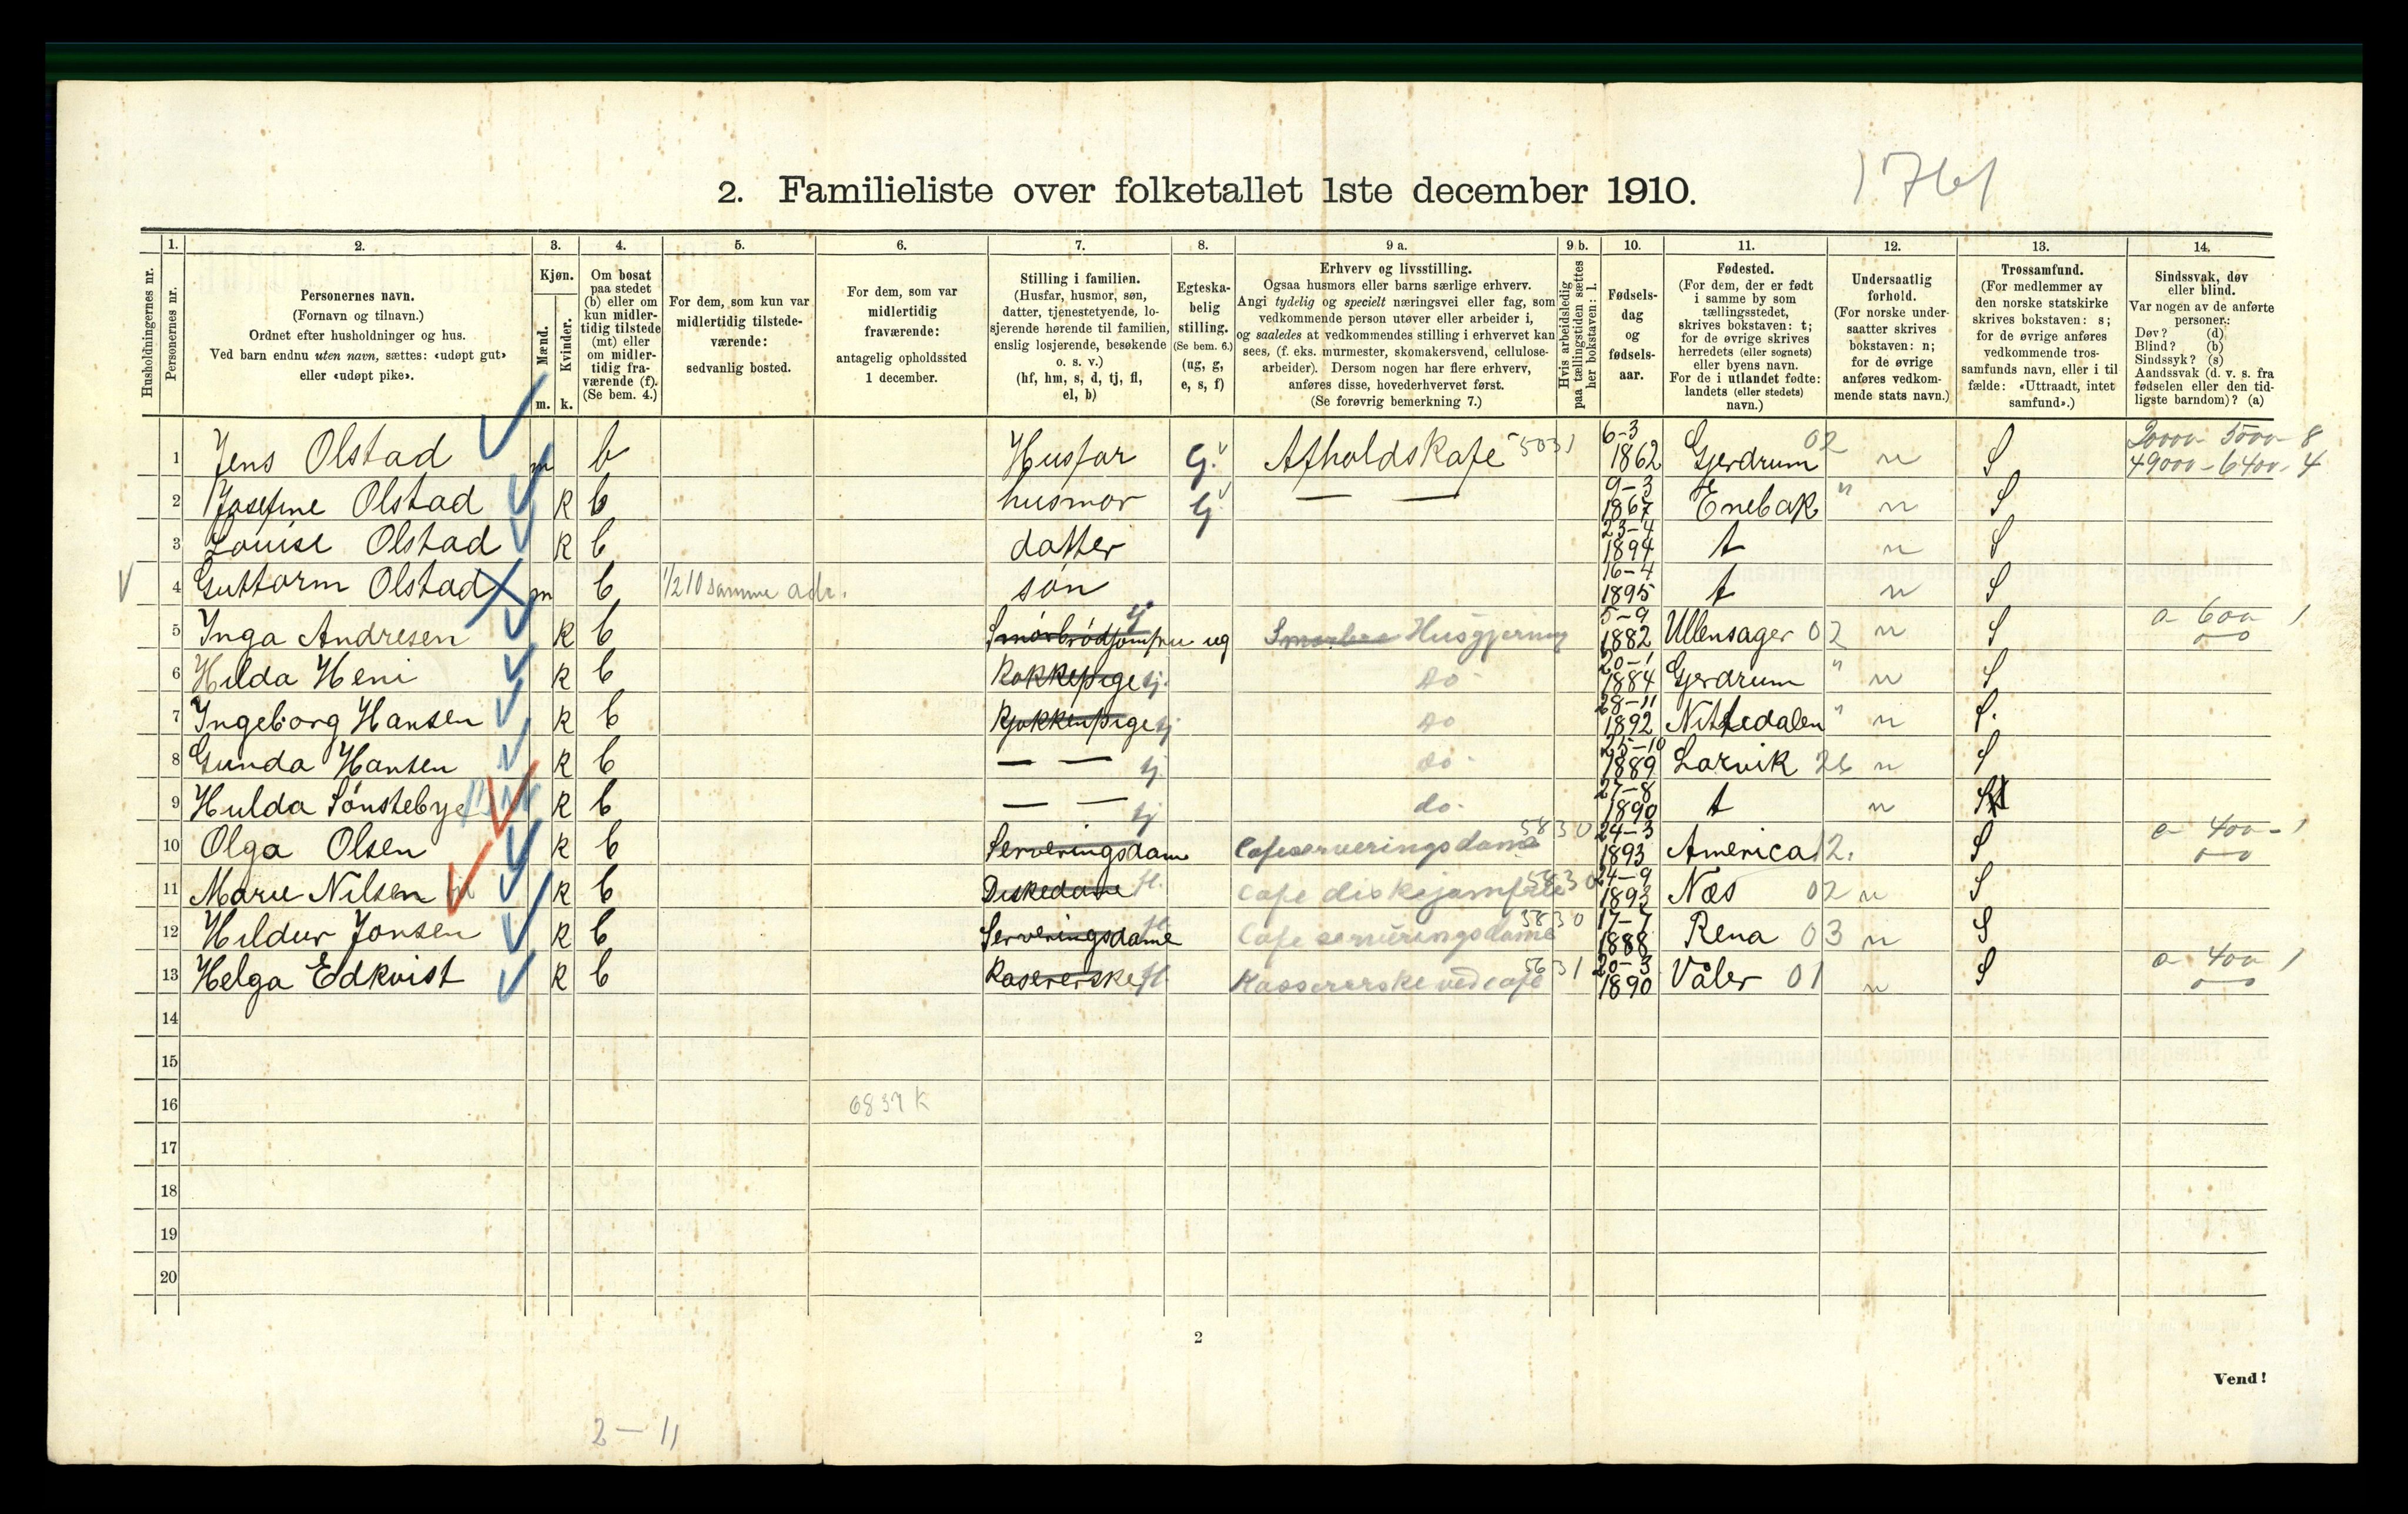 1761
2. Familieliste over folketallet 1ste december 1910.
Husholdningernes nr.
1. Personernes nr.
2. Personernes navn.
(Fornavn og tilnavn.)
Ordnet efter husholdninger og hus.
Ved barn endnu uten navn, sættes: «udøpt gut»
eller «udøpt pike».
3. Kjøn.
Mænd. m.
Kvinder. k.
4. Om bosat
paa stedet
(b) eller om
kun midler-
tidig tilstede
(mt) eller
om midler-
tidig fra-
værende (f).
(Se bem. 4.)
5. For dem, som kun var
midlertidig tilstede-
værende:
sedvanlig bosted.
6. For dem, som var
midlertidig
fraværende:
antagelig opholdssted
1 december.
7. Stilling i familien.
(Husfar, husmor, søn,
datter, tjenestetyende, lo-
sjerende hørende til familien,
enslig losjerende, besøkende
o. s. v.)
(hf, hm, s, d, tj, fl,
el, b)
8. Egteska-
belig
stilling.
(Se bem. 6.)
(ug, g,
e, s, f)
9 a. Erhverv og livsstilling.
Ogsaa husmors eller barns særlige erhverv.
Angi tydelig og specielt næringsvei eller fag, som
vedkommende person utøver eller arbeider i,
og saaledes at vedkommendes stilling i erhvervet kan
sees, (f. eks. murmester, skomakersvend, cellulose-
arbeider). Dersom nogen har flere erhverv,
anføres disse, hovederhvervet først.
(Se forøvrig bemerkning 7.)
9 b. Hvis arbeidsledig
paa tællingstiden sættes
her bokstaven: l.
10. Fødsels-
dag
og
fødsels-
aar.
11. Fødested.
(For dem, der er født
i samme by som
tællingsstedet,
skrives bokstaven: t;
for de øvrige skrives
herredets (eller sognets)
eller byens navn.
For de i utlandet fødte:
landets (eller stedets)
navn.)
12. Undersaatlig
forhold.
(For norske under-
saatter skrives
bokstaven: n;
for de øvrige
anføres vedkom-
mende stats navn.)
13. Trossamfund.
(For medlemmer av
den norske statskirke
skrives bokstaven: s;
for de øvrige anføres
vedkommende tros-
samfunds navn, eller i til
fælde: «Uttraadt, intet
samfund».)
14. Sindssvak, døv
eller blind.
Var nogen av de anførte
personer:
Døv? (d)
Blind? (b)
Sindssyk? (s)
Aandssvak (d. v. s. fra
fødselen eller den tid-
ligste barndom)? (a)
1 Jens Olstad m b Husfar G. Afholdskafe 5031 6-3 1862 Gjerdrum 02 n S 20000 - 5000 - 8
49000 - 6400 - 4
2 Josefine Olstad k b husmor G — — 9-3 1867 Enebak " n S
3 Louise Olstad k b datter 23-4 1894 t n S
4 Guttorm Olstad m b 1/2 10 samme adr. søn 16-4 1895 t n S
5 Inga Andresen k b Smørbrødjomfru tj ug Husgjerning 5-9 1882 Ullensager 02 n S a 600 1
6 Hilda Heni k b Kokkepige tj. do 20-1 1884 Gjerdrum " n S
7 Ingeborg Hansen k b Kjøkkenpige tj do 28-11 1892 Nittedalen " n S.
8 Gunda Hansen k b — — tj. do - 25-10 1889 Larvik 26 n S
9 Hulda Sønstebye k b — — tj do - 27-8 1890 t n S
10 Olga Olsen k b Serveringsdame Cafeserveringsdame 5830 24-3 1893 America 12. S a 400 - 1
11 Marie Nilsen k b Diskedame fl. Cafe diskejomfru 5830 24-9 1893 Næs 02 n S
12 Hildur Jonsen k b Serveringsdame fl Cafe serveringsdame 5830 17-7 1888 Rena 03 n S
13 Helga Edkvist k b Kasererske fl. Kassererske ved cafe 5631 20-3 1890 Våler 01 n S a 400 1
14
15
16 6837 K
17
18
19
20
2
Vend!
2 - 11